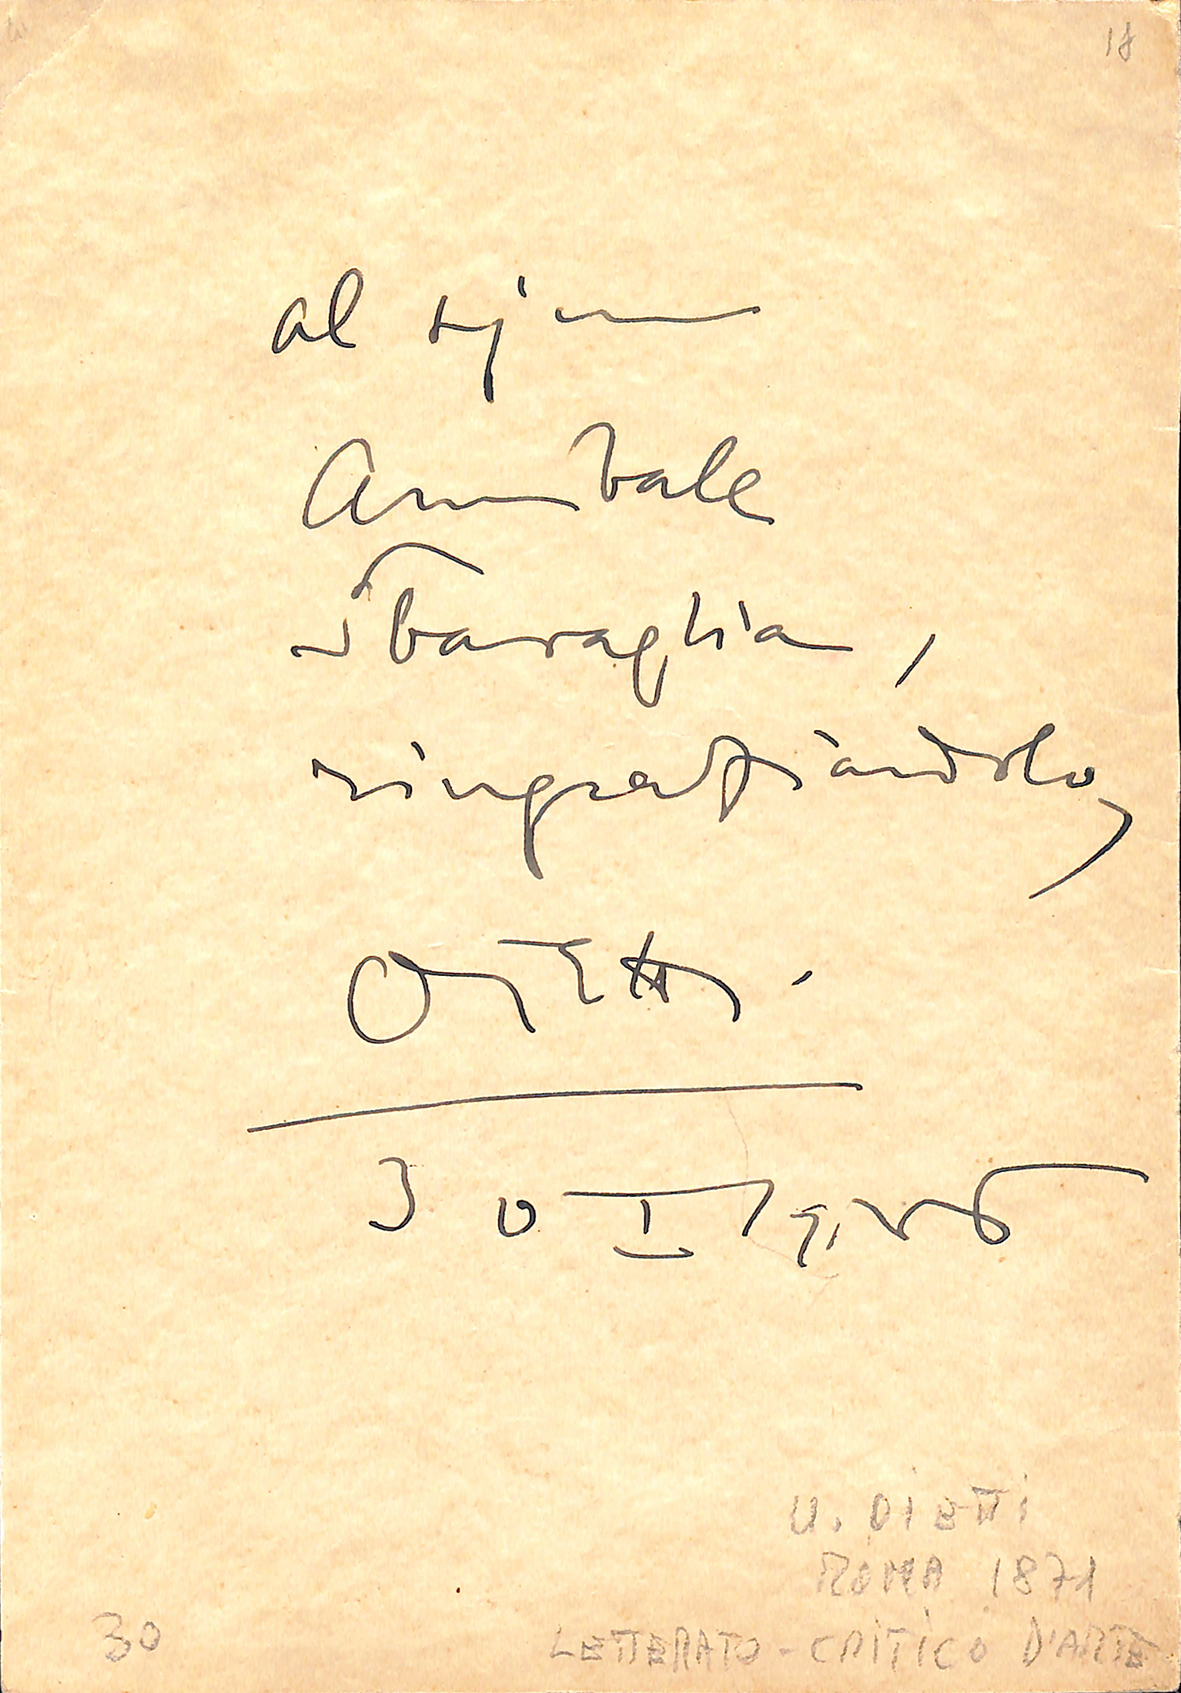 18
al signor
Annibale
Sbaraglia,
ringraziandolo,
Ojetti.
U. OIETTI
ROMA 1871
30
LETTERATO - CRITICO D'ARTE